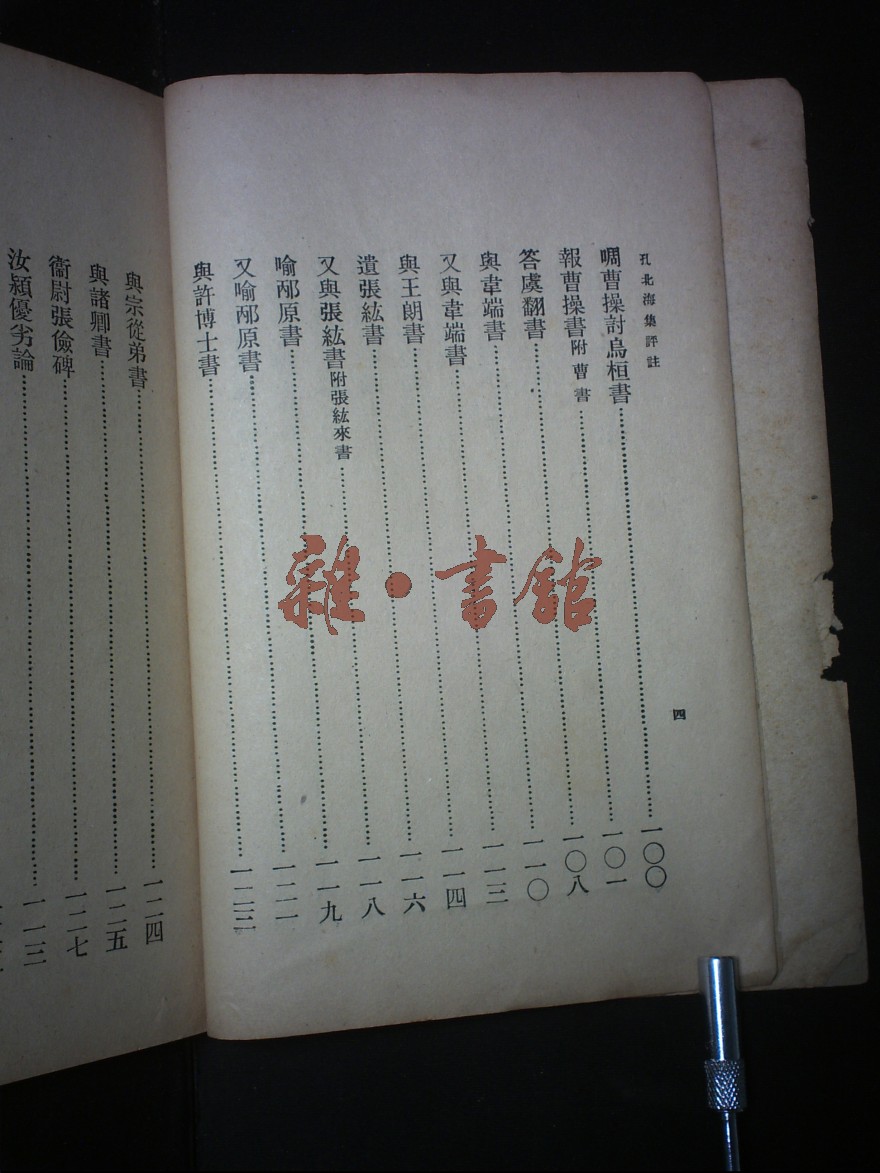 孔北海集評註
四
啁曹操討烏桓書……一〇〇
報曹操書附曹書……一〇一
答虞翻書……一〇八
與韋端書……一一〇
又與韋端書……一一三
與王朗書……一一四
遺張紘書……一一六
又與張紘書附張紘來書……一一八
喻邴原書……一一九
又喻邴原書……一二一
與許博士書……
與宗從弟書……一二四
與諸卿書……一二五
衞尉張儉碑……一二七
汝潁優劣論……
雜·書館